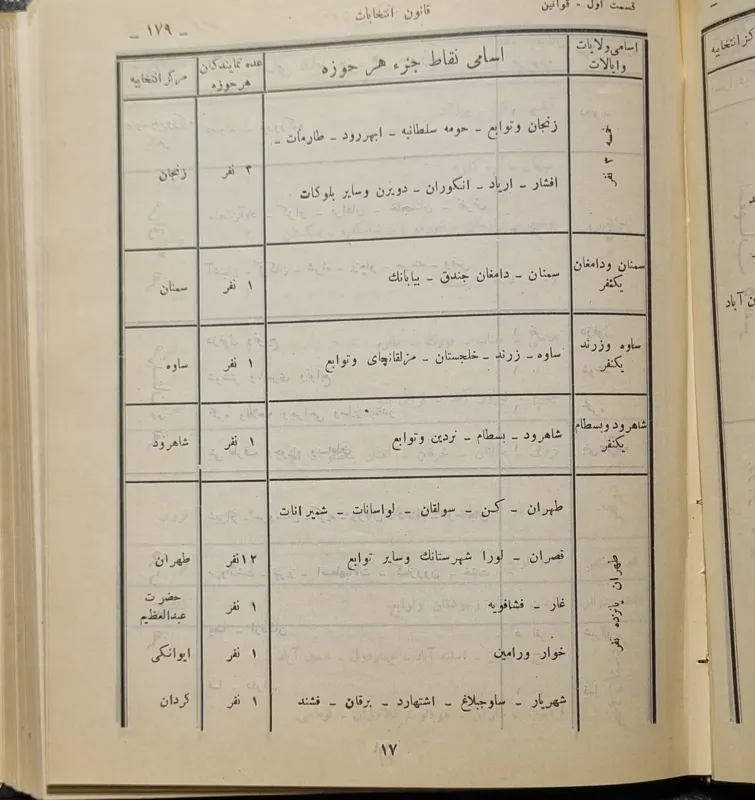 قسمت اول - قوانین
قانون انتخابات
- ۱۷۹ -
اسامی ولایات وایالات
اسامی نقاط جزء هر حوزه
عده نمایندگان هر حوزه
مرکز انتخابیه
خمسه ۳ نفر
زنجان وتوابع - حومه سلطانیه - ابهررود - طارمات -
افشار - اریاد - انکوران - دویرن وسایر بلوکات
۳ نفر
زنجان
سمنان ودامغان یکنفر
سمنان - دامغان جندق - بیابانك
۱ نفر
سمنان
ساوه وزرند یکنفر
ساوه - زرند - خلجستان - مزلقانچای وتوابع
۱ نفر
ساوه
شاهرود وبسطام یکنفر
شاهرود - بسطام - نردین وتوابع
۱ نفر
شاهرود
طهران پانزده نفر
طهران - کن - سولقان - لواسانات - شمیرانات
قصران - لورا شهرستانك وسایر توابع
۱۲نفر
طهران
غار - فشافویه
۱ نفر
حضرت عبدالعظیم
خوار ورامین
۱ نفر
ایوانکی
شهریار - ساوجبلاغ - اشتهارد - برقان - فشند
۱ نفر
کردان
۱۷